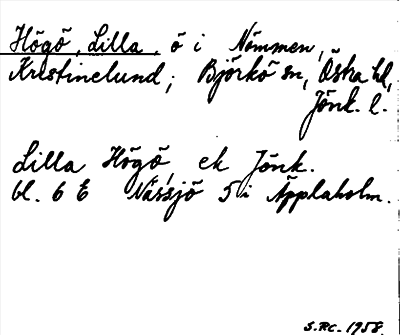 Högö, Lilla, ö i Nömmen,
Kristinelund, Björkö sn, Östra hd,
Jönk. l.
Lilla Högö, ek Jönk.
bl. 6 E Nässjö 5 i Äpplaholm.
S.RC. 1958.